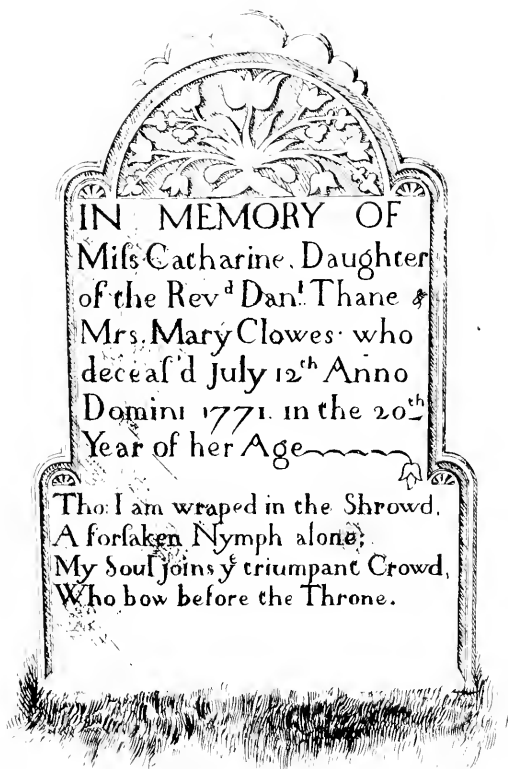 IN MEMORY OF
Miſs Catharine. Daughter
of the Revᵈ Danˡ. Thane &
Mrs. Mary Clowes· who
deceaſ'd July 12ᵗʰ Anno
Domini 1771. in the 20ᵗʰ
Year of her Age
Tho: I am wraped in the Shrowd,
A forſaken Nymph alone;
My Souſ joins yᵉ triumpant Crowd,
Who bow before the Throne.